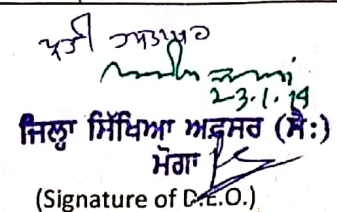 ਪ੍ਰਤੀ ਹਸਤਾਖਰ
23.1.14
ਜਿਲ੍ਹਾ ਸਿੱਖਿਆ ਅਫਸਰ (ਸੈ:)
ਮੋਗਾ
(Signature of D.E.O.)